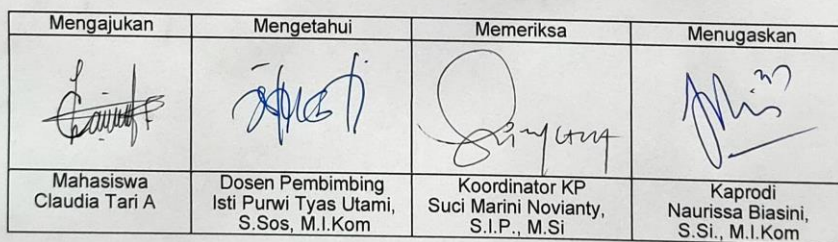 Mengajukan
Mengetahui
Memeriksa
Menugaskan
Mahasiswa
Claudia Tari A
Dosen Pembimbing
Isti Purwi Tyas Utami,
S.Sos, M.I.Kom
Koordinator KP
Suci Marini Novianty,
S.I.P., M.Si
Kaprodi
Naurissa Biasini,
S.Si., M.I.Kom